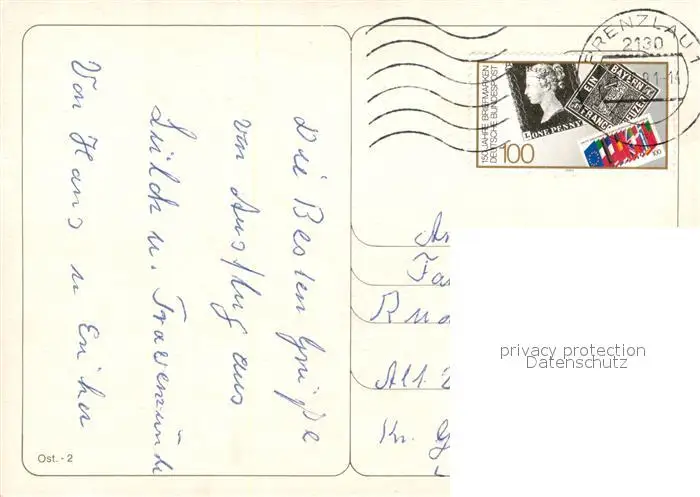 Die Besten Grüße
von Ausflug aus
u. Travemünde
Von Hans u
Ost. - 2
PRENZLAU 1
2130
150 JAHRE BRIEFMARKEN
DEUTSCHE BUNDESPOST
100
ONE PENNY
BAYERN
EIN
FRANCO
100
An
Fa
Rud
Alt
Kr. G
privacy protection
Datenschutz